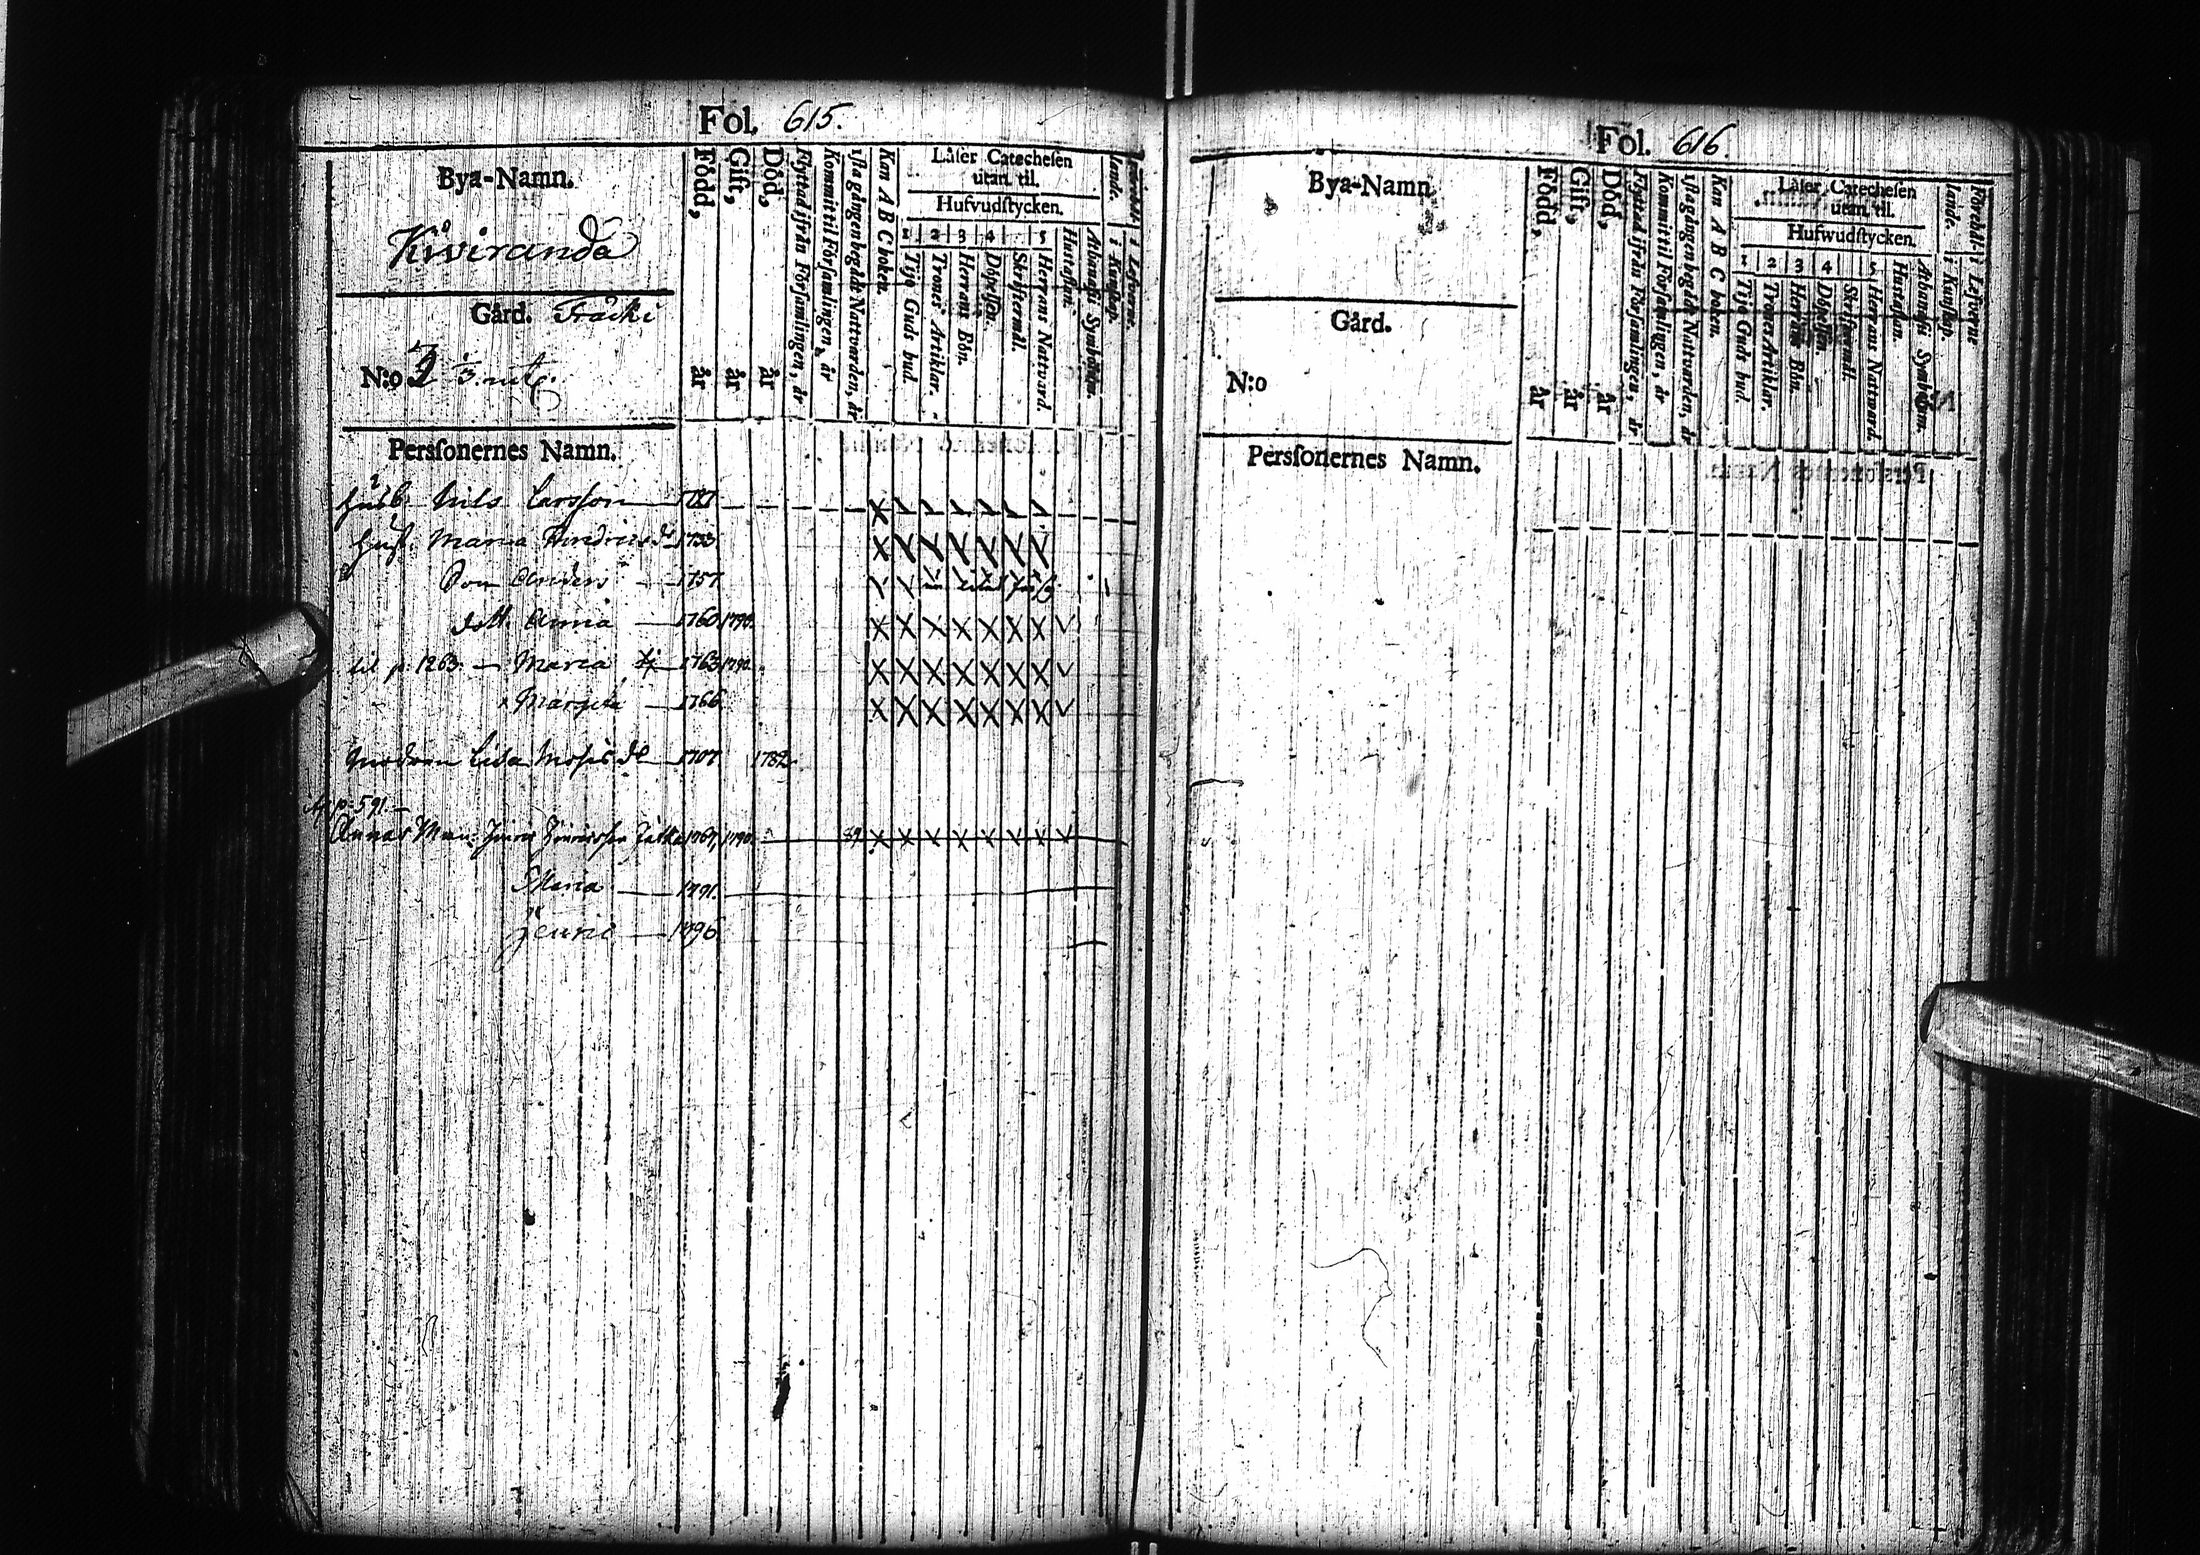 Fol. 615.
Bya-Namn.
Kiviranda
Gård. Fråcki
N:o 2 1/3. mtl.
Född, år
Gift, år
Död, år
Flyttad ifrån Församlingen, år
Kommit til Församlingen, år
1sta gången begådt Nattvarden, år
Kan A B C boken.
Låser Catechesen utan til.
Hufvudstycken.
1 2 3 4 5
Tijo Guds bud.
Trones Artiklar.
Herrans Bön.
Döpelsen.
Skriftermål.
Herrans Nattvard.
Hustaflan.
Athanasii Symbolum.
i Kunskap.
i Lefverne.
Personernes Namn.
Husb. Nils Larsson
Hust. Maria Hindricsdr 1733.
Son Anders 1757.
dott. Anna 1760. 1790.
til p. 1263. Maria 1763. 1790.
Margeta 1766.
Modren Lisa Mosisdr 1707. 1782
Af p. 591.
Annas Man: 1767. 1790. 89.
Maria 1791.
1796.
Fol. 616.
Bya-Namn.
Gård.
N:o
Född, år
Gift, år
Död, år
Flyttad ifrån Församlingen, år
Kommit til Församlingen, år
1sta gången begådt Nattvarden, år
Kan A B C boken.
Låser Catechesen utan til.
Hufwudstycken.
1 2 3 4 5
Tijo Guds bud.
Trones Artiklar.
Herrans Bön.
Döpelsen.
Skriftermål.
Herrans Nattward.
Hustaflan.
Athanasii Symbolum.
Förehållande. i Kunskap.
i Lefverne
Personernes Namn.